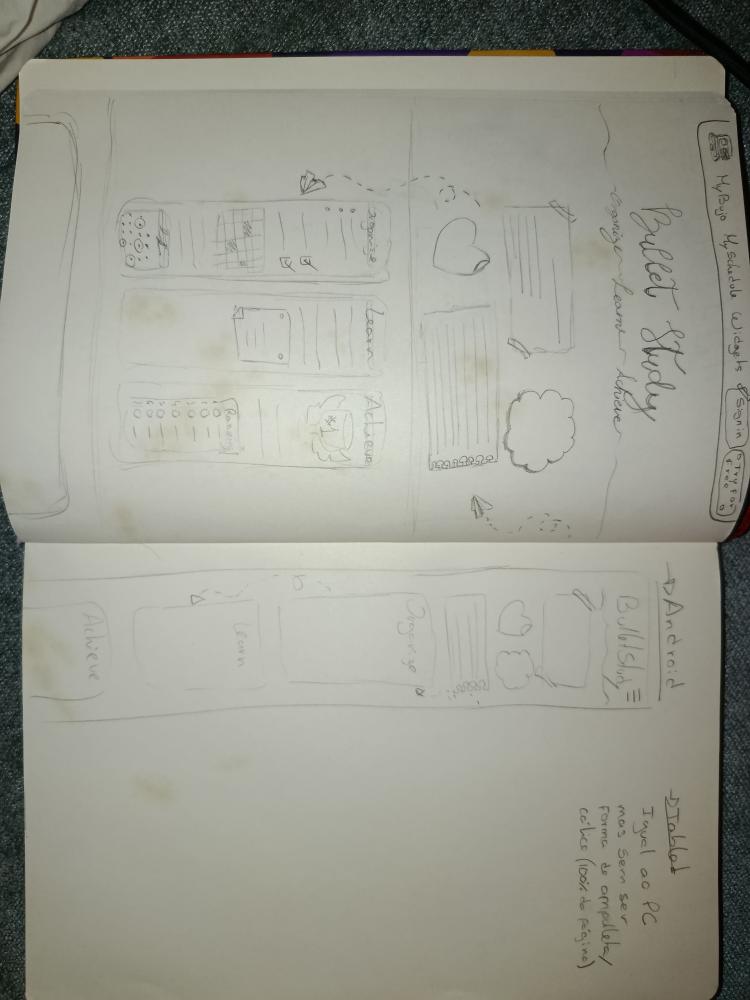 MyBujo MySchedule Widgets Sign in Try For Free
Bullet Study
Organize Learn Achieve
Organize
Learn
Achieve
→ Android
Bullet Study
Organize
Learn
Achieve
→ Tablet
Igual ao PC
mas sem ser
forma de ampulheta/
(100% da página)